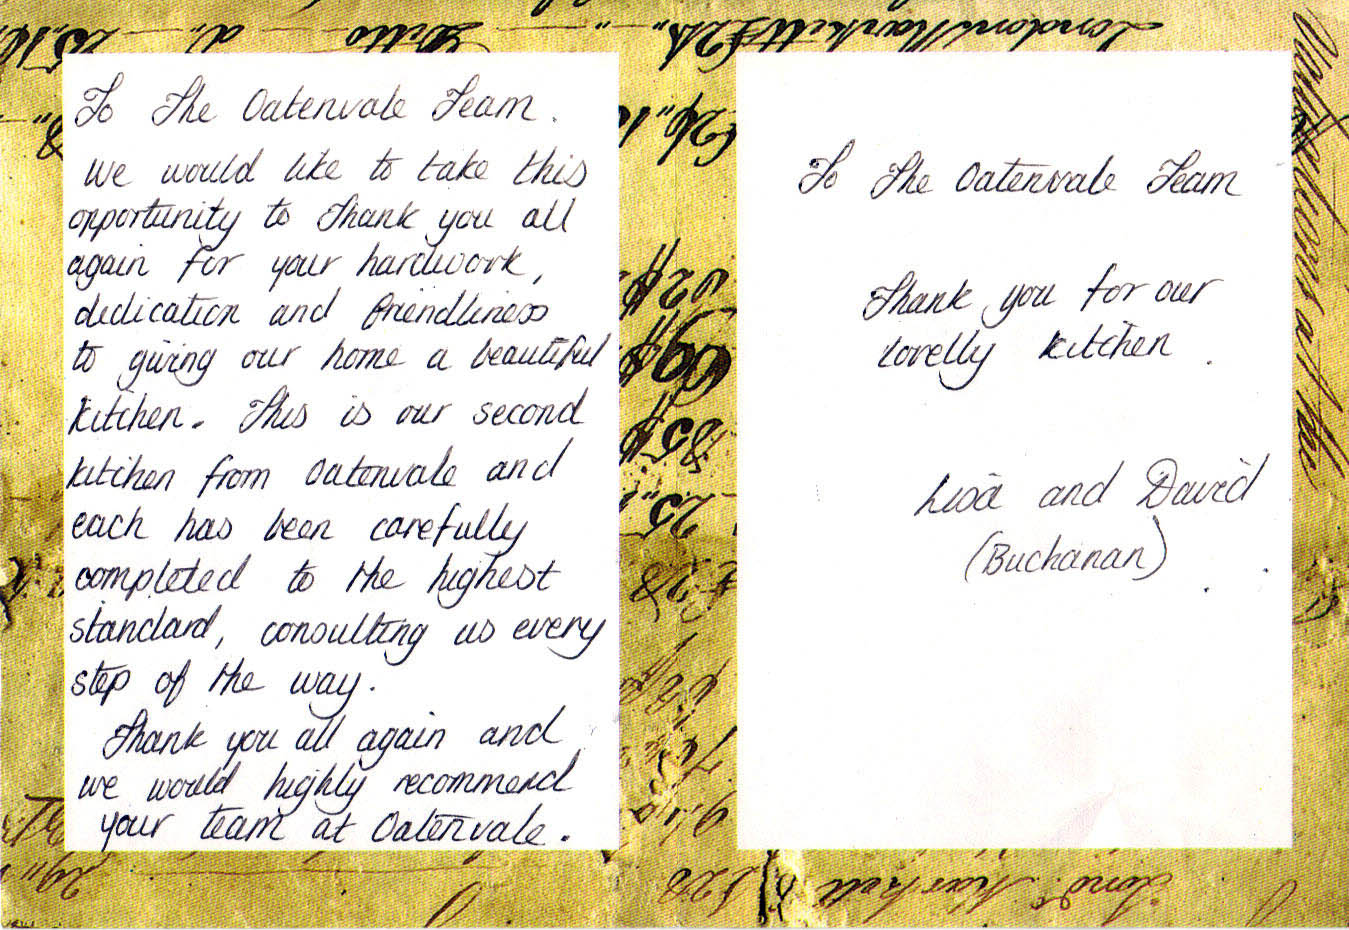 To The Oatenvale Team.
We would like to take this
opportunity to Thank you all
again for your hardwork,
dedication and friendliness
to giving our home a beautiful
kitchen. This is our second
kitchen from Oatenvale and
each has been carefully
completed to the highest
standard, consulting us every
step of the way.
Thank you all again and
we would highly recommend
your team at Oatenvale.
To The Oatenvale Team
Thank you for our
lovelly kitchen.
Lisa and David
(Buchanan)